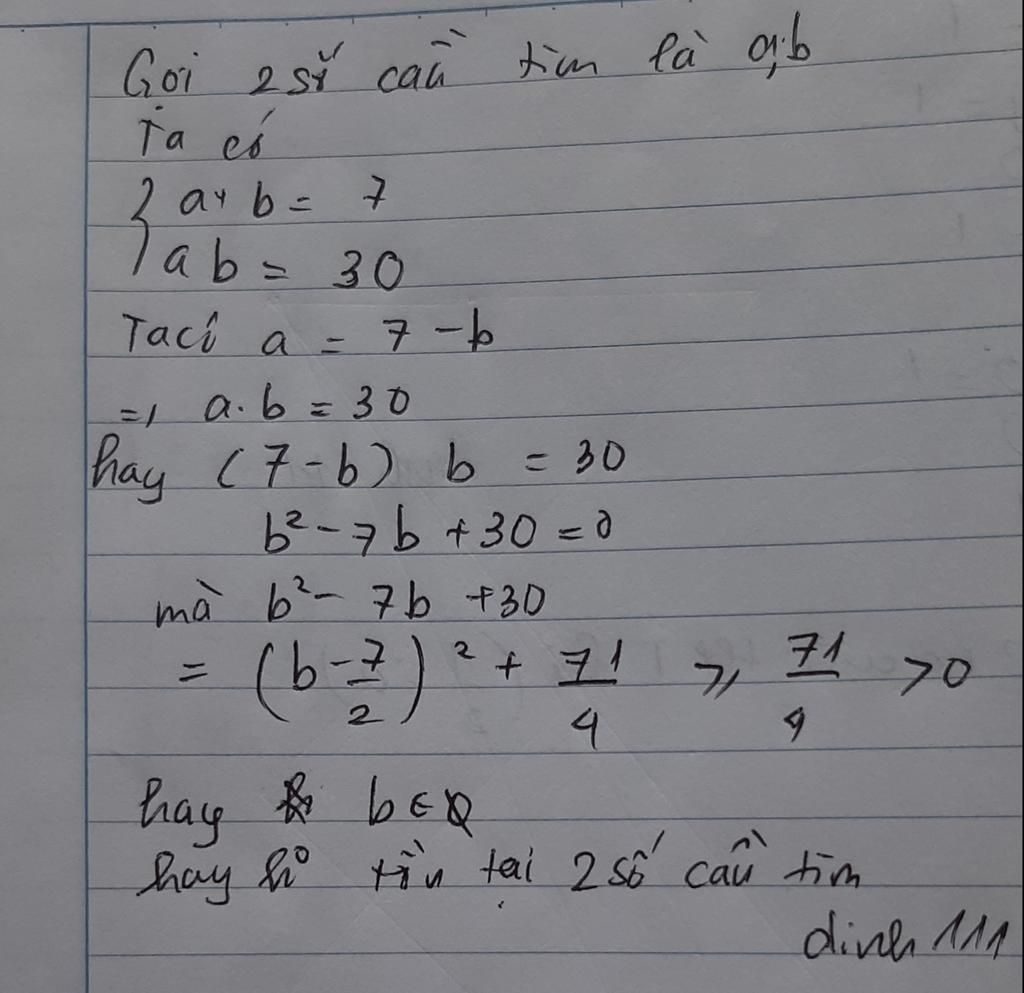 Gọi 2 số cần tìm là a,b
Ta có
{ a + b = 7
a b = 30
Ta có a = 7 - b
=> a. b = 30
hay (7 - b) b = 30
b² - 7b + 30 = 0
mà b² - 7b + 30
= (b - 7/2)² + 71/4 ≥ 71/4 > 0
hay b ∈ Q
hay k⁰ tồn tại 2 số cần tìm
dinh 111